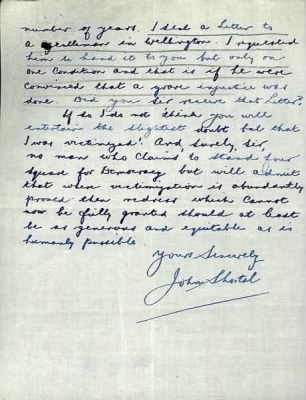 number of years. I sent a letter to
a gentleman in Wellington. I requested
him to hand it to you but only on
one condition and that is if he were
convinced that a grave injustice was
done. Did you Sir receive that letter?
If so I do not think you will
entertain the slightest doubt but that
I was victimized! And, surely, Sir,
no man who claims to stand four
square for Democracy but will admit
that when victimization is abundantly
proved then redress which cannot
now be fully granted should at least
be as generous and equitable as is
humanly possible
Yours Sincerely
John